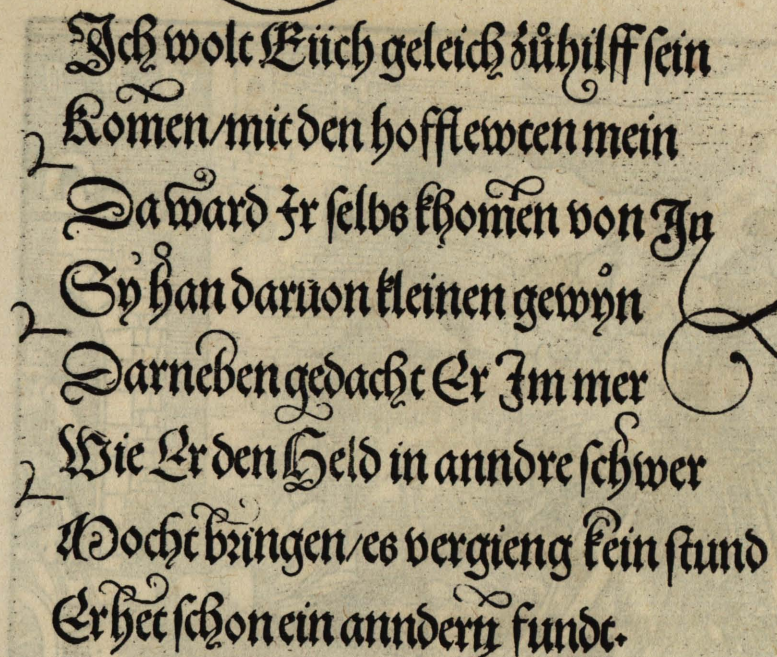 Ich wolt Eüch geleich zůhilff sein
Komẽn/mit den hofflewten mein
Da ward Ir selbs khomẽn von In
Sÿ han daruon kleinen gewyn
Darneben gedacht Er Im mer
Wie Er den Held in anndre schwer
Mocht bringen/es vergieng kein stund
Er het schon ein anndern fundt.